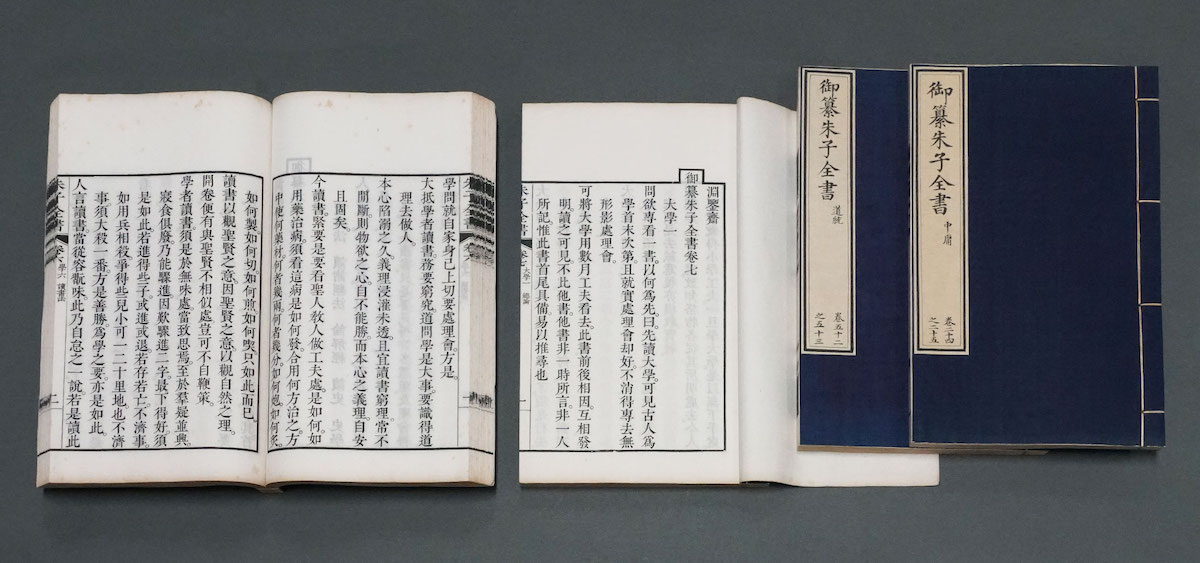 學問就自家身己上切要處理會。方是。
大抵學者讀書。務要窮究。道問學是大事。要識得道
理去做人
本心陷溺之久。義理浸灌未透。且宜讀書窮理。常不
間斷。則物欲之心。自不能勝。而本心之義理。自安
且固矣。
今讀書。緊要是要看聖人教人做工夫處。是如何。如
用藥治病。須看這病是如何發。合用何方治之。方
中使何藥材。何者幾兩。何者幾分。如何炮。如何炙。
如何製。如何切。如何煎。如何喫。只如此而已。
讀書以觀聖賢之意。因聖賢之意。以觀自然之理。
開卷便有與聖賢不相似處。豈可不自鞭策。
學者讀書。須是於無味處。當致思焉。至於羣疑並興。
寢食俱廢。乃能驟進。因歎驟進二字。最下得好。須
是如此。若進得些子。或進或退。若存若亡。不濟事。
如用兵相殺。爭得些兒小可一二十里地。也不濟
事。須大殺一番。方是善勝。為學之要。亦是如此。
人言讀書。當從容翫味。此乃自怠之一說。若是讀此
朱子全書 卷六 學六 讀書法 二
淵鑒齋
御纂朱子全書卷七
大學一
問欲專看一書。以何為先。曰。先讀大學。可見古人為
學首末次第。且就實處理會却好。不消得專去無
形影處理會。
可將大學用數月工夫看去。此書前後相因。互相發
明。讀之可見。不比他書。他書非一時所言。非一人
所記。惟此書首尾具備。易以推尋也
朱子全書 卷七 大學一 總論 一
御纂朱子全書 道統
卷五十二
之五十三
御纂朱子全書 中庸
卷二十四
之二十五